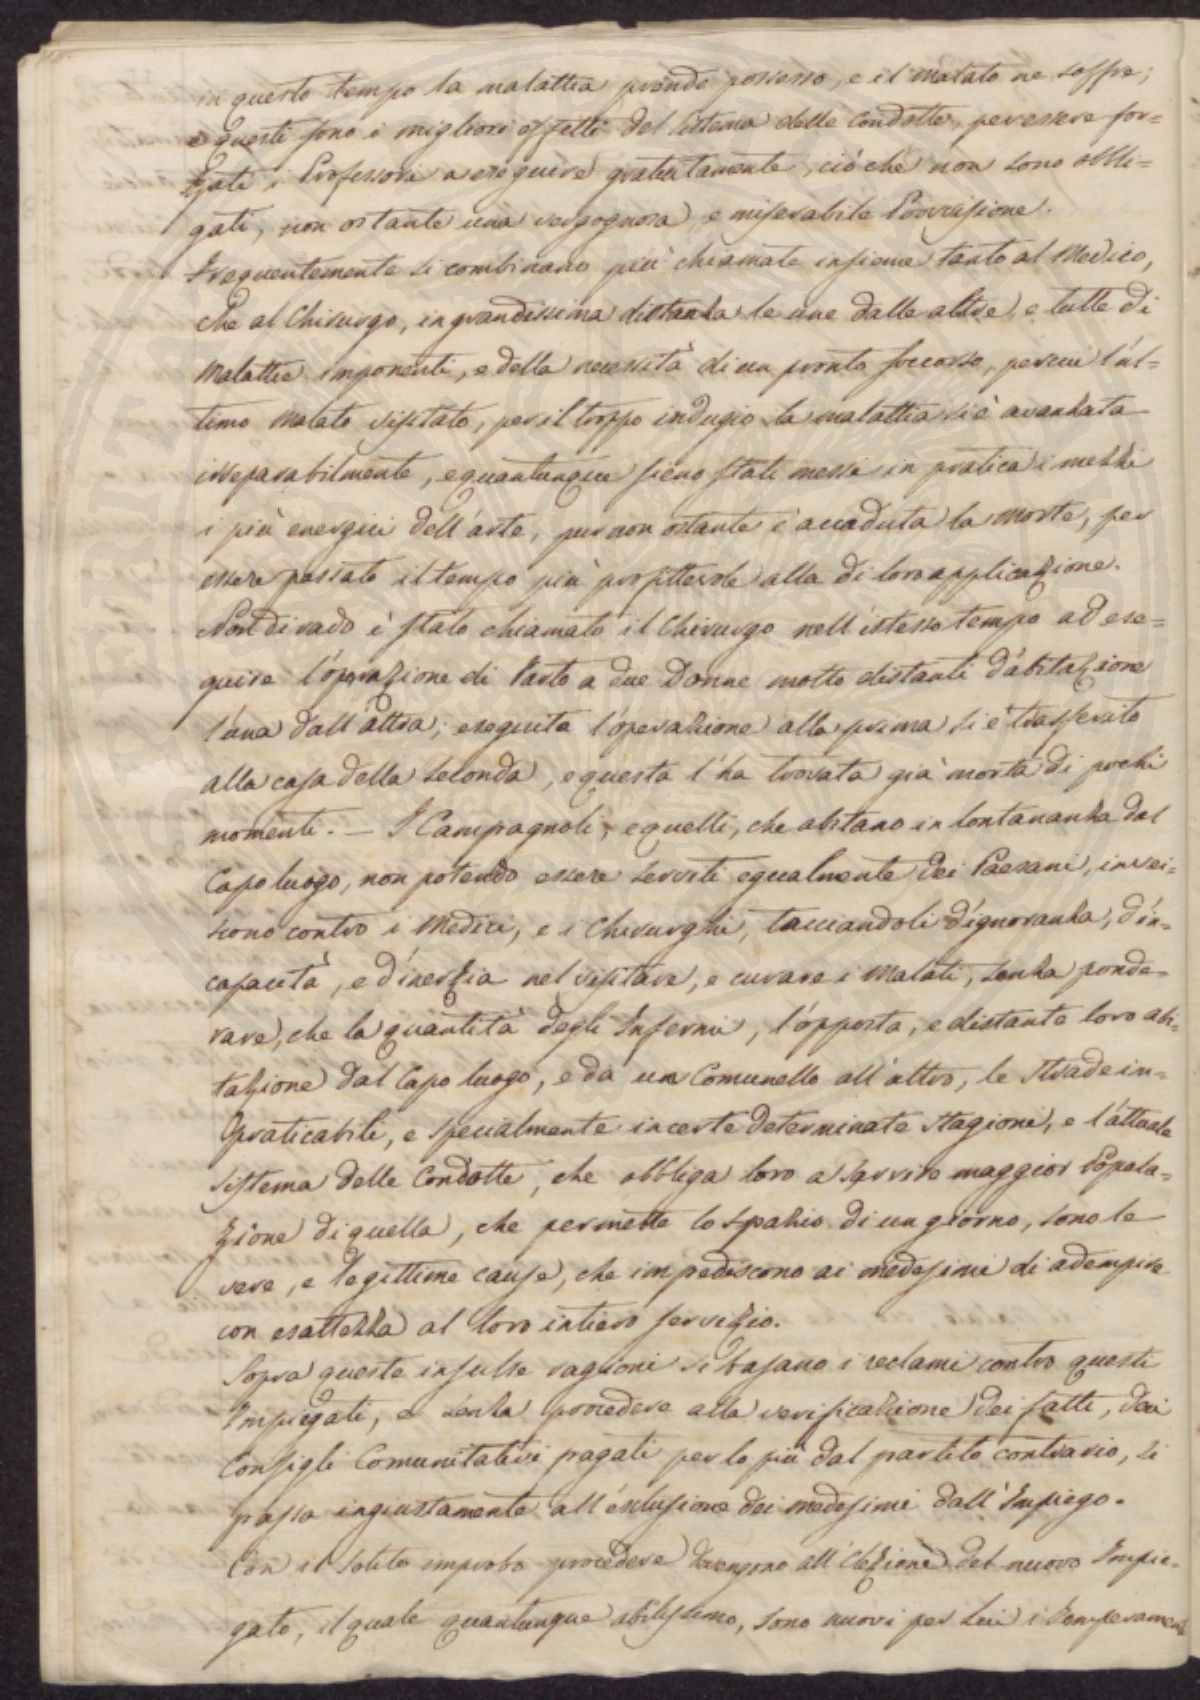 in questo tempo la malattia prende possesso, e il malato ne soffre;
e questi sono i migliori effetti del sistema delle Condotte, per essere for=
zati i Professori a eseguire gratuitamente, ciò che non sono obbli=
gati, non ostante una vergognosa, e miserabile Provvisione.
Frequentemente si combinano più chiamate insieme tanto al Medico,
che al Chirurgo, in grandissima distanza le une dalle altre, e tutte di
Malattie imponenti, e della necessità di un pronto soccorso, per cui l'ul=
timo Malato visitato, per il troppo indugio la malattia si è avanzata
irreparabilmente, e quantunque sieno stati messi in pratica i mezzi
i più energici dell'arte, pur non ostante è accaduta la morte, per
essere passato il tempo più profittevole alla di loro applicazione.
Non di rado è stato chiamato il Chirurgo nell'istesso tempo ad ese=
guire l'operazione di Parto a due Donne molto distanti d'abitazione
l'una dall'altra; eseguita l'operazione alla prima si è trasferito
alla casa della seconda, e questa l'ha trovata già morta di pochi
momenti. — I Campagnoli, e quelli, che abitano in lontananza dal
Capo luogo, non potendo essere serviti egualmente dei Paesani, invei=
scono contro i Medici, e i Chirurghi, tacciandoli d'ignoranza, d'in=
capacità, e d'inerzia nel visitare, e curare i Malati, senza ponde=
rare, che la quantità degli Infermi, l'opposta, e distante loro abi=
tazione dal Capo luogo, e da un Comunello all'altro, le Strade in=
praticabili, e specialmente in certe determinate stagioni, e l'attuale
sistema delle Condotte, che obbliga loro a servire maggior Popola=
zione di quella, che permette lo spazio di un giorno, sono le
vere, e legittime cause, che impediscono ai medesimi di adempire
con esattezza al loro intiero servizio.
Sopra queste insulse ragioni si basano i reclami contro questi
Impiegati, e senza procedere alla verificazione dei fatti, dai
Consigli Comunitativi pagati per lo più dal partito contrario, si
passa ingiustamente all'esclusione dei medesimi dall'Impiego.
Con il solito improbo procedere devengono all'elezione del nuovo Impie=
gato, il quale quantunque abilissimo, sono nuovi per Lui i Temperamenti